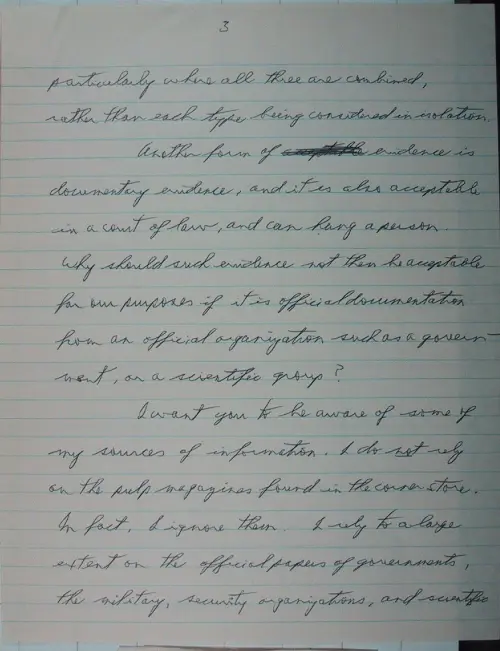 3
particularly where all three are combined,
rather than each type being considered in isolation.
Another form of evidence is
documentary evidence, and it is also acceptable
in a court of law, and can hang a person.
Why should such evidence not then be acceptable
for our purposes if it is official documentation
from an official organization such as a govern-
ment, or a scientific group?
I want you to be aware of some of
my sources of information. I do not rely
on the pulp magazines found in the corner store.
In fact, I ignore them. I rely to a large
extent on the official papers of governments,
the military, security organizations, and scientific